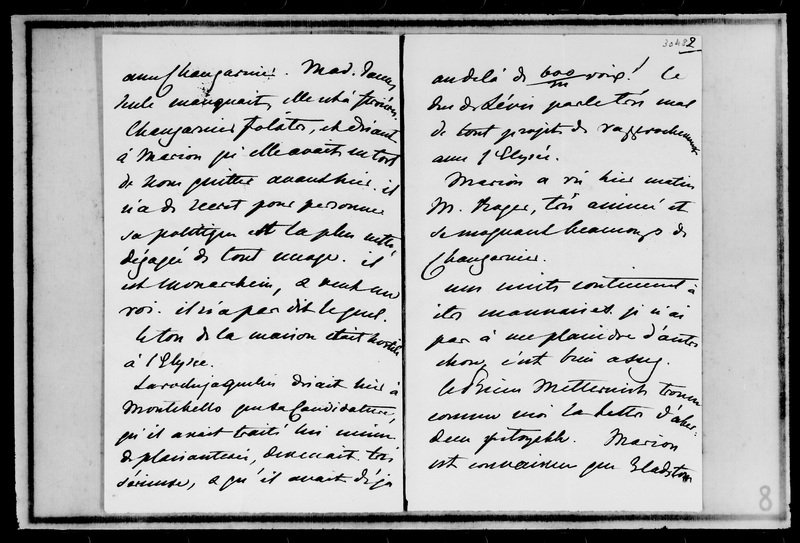 avec Changarnier. Mad. Dauny
seule manquait, elle est à
Changarnier folâtre, et disait
à Marion qu'elle avait eu tort
de nous quitter avant hier. il
n'a de secret pour personne
sa politique est la plus nette,
dégagée de tout nuage. il
est monarchien, & veut un
roi. il n'a pas dit lequel.
le ton de la maison était hostile
à l'Elysée.
Larochejaquelin disait hier à
Montebello que sa Candidature,
qu'il avait traité lui même
de plaisanterie, devenait très
sérieuse, & qu'il avait déjà
30482
au delà de 600/m voix! le
duc de Lévis parle très mal
de tout projet de rapprochement
avec l'Elysée.
Marion a vu hier matin
M. Roger, très animé et
se moquant beaucoup de
Changarnier.
mes nuits continuent à
être mauvaises. je n'ai
pas à me plaindre d'autre
chose, c'est bien assez.
le Prince Metternich trouve
comme moi la lettre d'Aber-
deen pitoyable. Marion
est convaincue que Gladstone
8